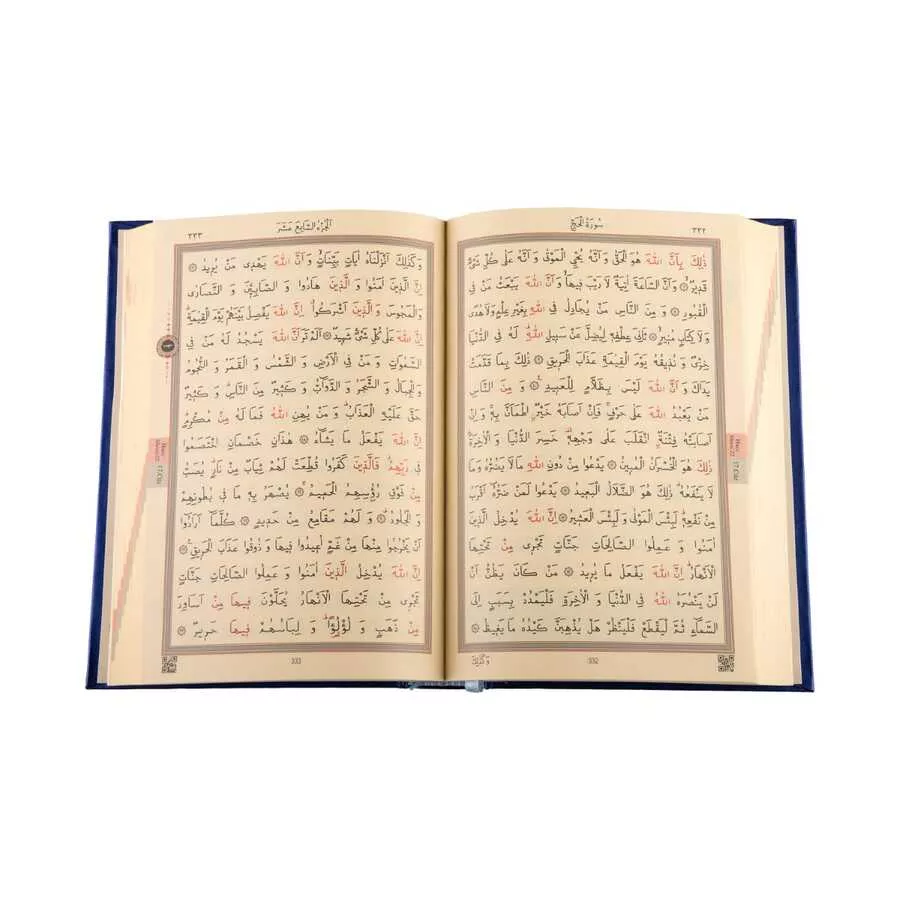 ٣٣٢
سُورَةُ الْحَجِّ
ذٰلِكَ بِاَنَّ اللّٰهَ هُوَ الْحَقُّ وَ اَنَّهُ يُحْيِ الْمَوْتٰى وَ اَنَّهُ عَلٰى كُلِّ شَيْءٍ
قَدِيرٌ ۞ وَ اَنَّ السَّاعَةَ اٰتِيَةٌ لَا رَيْبَ فِيهَا وَ اَنَّ اللّٰهَ يَبْعَثُ مَنْ فِي
الْقُبُورِ ۞ وَ مِنَ النَّاسِ مَنْ يُجَادِلُ فِي اللّٰهِ بِغَيْرِ عِلْمٍ وَلَا هُدًى
وَلَا كِتَابٍ مُنِيرٍ ۞ ثَانِيَ عِطْفِهِ لِيُضِلَّ عَنْ سَبِيلِ اللّٰهِ لَهُ فِي الدُّنْيَا
خِزْيٌ وَ نُذِيقُهُ يَوْمَ الْقِيٰمَةِ عَذَابَ الْحَرِيقِ ۞ ذٰلِكَ بِمَا قَدَّمَتْ
يَدَاكَ وَ اَنَّ اللّٰهَ لَيْسَ بِظَلَّامٍ لِلْعَبِيدِ ۞ وَ مِنَ النَّاسِ
مَنْ يَعْبُدُ اللّٰهَ عَلٰى حَرْفٍ فَاِنْ اَصَابَهُ خَيْرٌ اطْمَاَنَّ بِهِ وَ اِنْ
اَصَابَتْهُ فِتْنَةٌ انْقَلَبَ عَلٰى وَجْهِهِ خَسِرَ الدُّنْيَا وَ الْاٰخِرَةَ
ذٰلِكَ هُوَ الْخُسْرَانُ الْمُبِينُ ۞ يَدْعُوا مِنْ دُونِ اللّٰهِ مَا لَا يَضُرُّهُ وَمَا
لَا يَنْفَعُهُ ذٰلِكَ هُوَ الضَّلَالُ الْبَعِيدُ ۞ يَدْعُوا لَمَنْ ضَرُّهُ اَقْرَبُ
مِنْ نَفْعِهِ لَبِئْسَ الْمَوْلٰى وَ لَبِئْسَ الْعَشِيرُ ۞ اِنَّ اللّٰهَ يُدْخِلُ الَّذِينَ
اٰمَنُوا وَ عَمِلُوا الصَّالِحَاتِ جَنَّاتٍ تَجْرِي مِنْ تَحْتِهَا
الْاَنْهَارُ اِنَّ اللّٰهَ يَفْعَلُ مَا يُرِيدُ ۞ مَنْ كَانَ يَظُنُّ اَنْ
لَنْ يَنْصُرَهُ اللّٰهُ فِي الدُّنْيَا وَ الْاٰخِرَةِ فَلْيَمْدُدْ بِسَبَبٍ اِلَى
السَّمَاءِ ثُمَّ لْيَقْطَعْ فَلْيَنْظُرْ هَلْ يُذْهِبَنَّ كَيْدُهُ مَا يَغِيظُ ۞
332
وَكَذٰلِكَ
اَلْجُزْءُ السَّابِعَ عَشَرَ
٣٣٣
وَ كَذٰلِكَ اَنْزَلْنَاهُ اٰيَاتٍ بَيِّنَاتٍ وَ اَنَّ اللّٰهَ يَهْدِي مَنْ يُرِيدُ ۞
اِنَّ الَّذِينَ اٰمَنُوا وَ الَّذِينَ هَادُوا وَ الصَّابِئِينَ وَ النَّصَارٰى
وَ الْمَجُوسَ وَ الَّذِينَ اَشْرَكُوا اِنَّ اللّٰهَ يَفْصِلُ بَيْنَهُمْ يَوْمَ الْقِيٰمَةِ
اِنَّ اللّٰهَ عَلٰى كُلِّ شَيْءٍ شَهِيدٌ ۞ اَلَمْ تَرَ اَنَّ اللّٰهَ يَسْجُدُ لَهُ مَنْ فِي
السَّمٰوَاتِ وَ مَنْ فِي الْاَرْضِ وَ الشَّمْسُ وَ الْقَمَرُ وَ النُّجُومُ
وَ الْجِبَالُ وَ الشَّجَرُ وَ الدَّوَابُّ وَ كَثِيرٌ مِنَ النَّاسِ وَ كَثِيرٌ
حَقَّ عَلَيْهِ الْعَذَابُ وَ مَنْ يُهِنِ اللّٰهُ فَمَا لَهُ مِنْ مُكْرِمٍ
اِنَّ اللّٰهَ يَفْعَلُ مَا يَشَاءُ ۞ هٰذَانِ خَصْمَانِ اخْتَصَمُوا
فِي رَبِّهِمْ فَالَّذِينَ كَفَرُوا قُطِّعَتْ لَهُمْ ثِيَابٌ مِنْ نَارٍ يُصَبُّ
مِنْ فَوْقِ رُؤُسِهِمُ الْحَمِيمُ ۞ يُصْهَرُ بِهِ مَا فِي بُطُونِهِمْ
وَ الْجُلُودُ ۞ وَ لَهُمْ مَقَامِعُ مِنْ حَدِيدٍ ۞ كُلَّمَا اَرَادُوا
اَنْ يَخْرُجُوا مِنْهَا مِنْ غَمٍّ اُعِيدُوا فِيهَا وَ ذُوقُوا عَذَابَ الْحَرِيقِ ۞
اِنَّ اللّٰهَ يُدْخِلُ الَّذِينَ اٰمَنُوا وَ عَمِلُوا الصَّالِحَاتِ جَنَّاتٍ
تَجْرِي مِنْ تَحْتِهَا الْاَنْهَارُ يُحَلَّوْنَ فِيهَا مِنْ اَسَاوِرَ
مِنْ ذَهَبٍ وَ لُؤْلُؤًا وَ لِبَاسُهُمْ فِيهَا حَرِيرٌ ۞
333